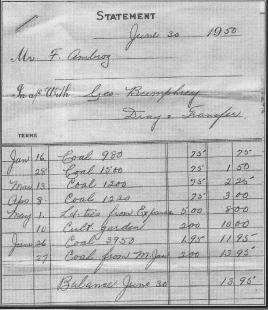 STATEMENT
June 30 1950
Mr. F. Ambroz
In a/c With Geo. Bumphrey
Dray & Transfer
TERMS
Jan 16 Coal 980 75 75
28 Coal 1500 75 1 50
Mar 13 Coal 1200 75 2 25
Apr 8 Coal 1220 75 3 00
May 1 from 5 00 8 00
10 Cult. garden 2 00 10 00
June 26 Coal 3950 1.95 11 95
27 Coal from M. Jaw 2 00 13 95
Balance June 30 13.95